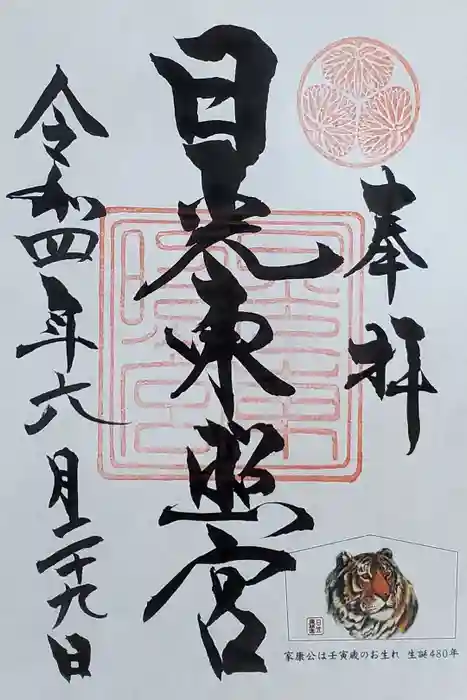 奉拝
日光東照宮
令和四年六月二十九日
家康公は壬寅歳のお生れ 生誕480年